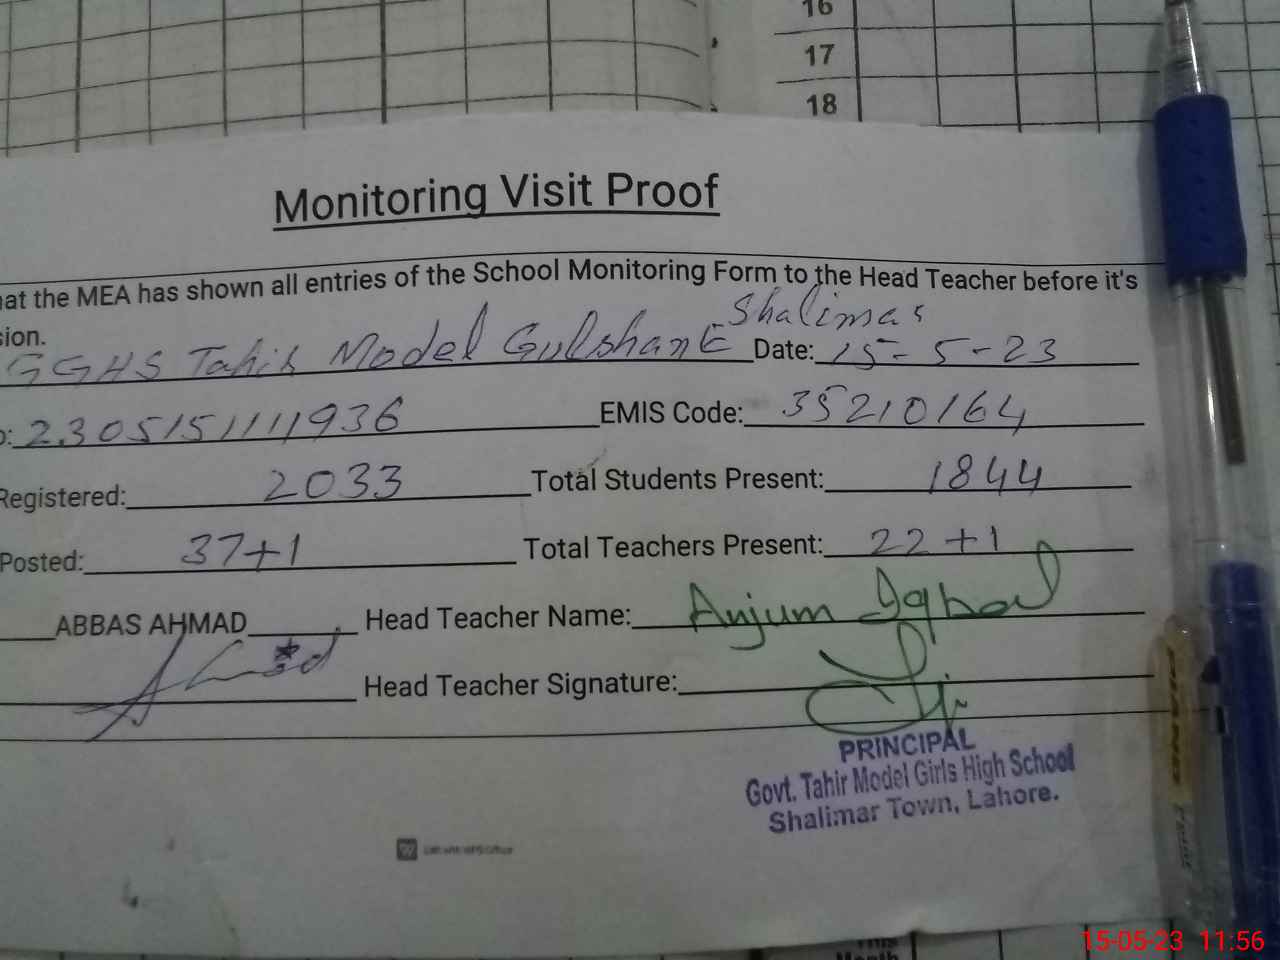 16
17
18
Monitoring Visit Proof
at the MEA has shown all entries of the School Monitoring Form to the Head Teacher before it's
sion.
GGHS Tahir Model Gulshan E Shalimar Date: 15-5-23
: 2305151111936 EMIS Code: 35210164
Registered: 2033 Total Students Present: 1844
Posted: 37+1 Total Teachers Present: 22+1
ABBAS AHMAD Head Teacher Name: Anjum Iqbal
Head Teacher Signature:
PRINCIPAL
Govt. Tahir Model Girls High School
Shalimar Town, Lahore.
Edit with WPS Office
PIANO
This
Month
15-05-23 11:56